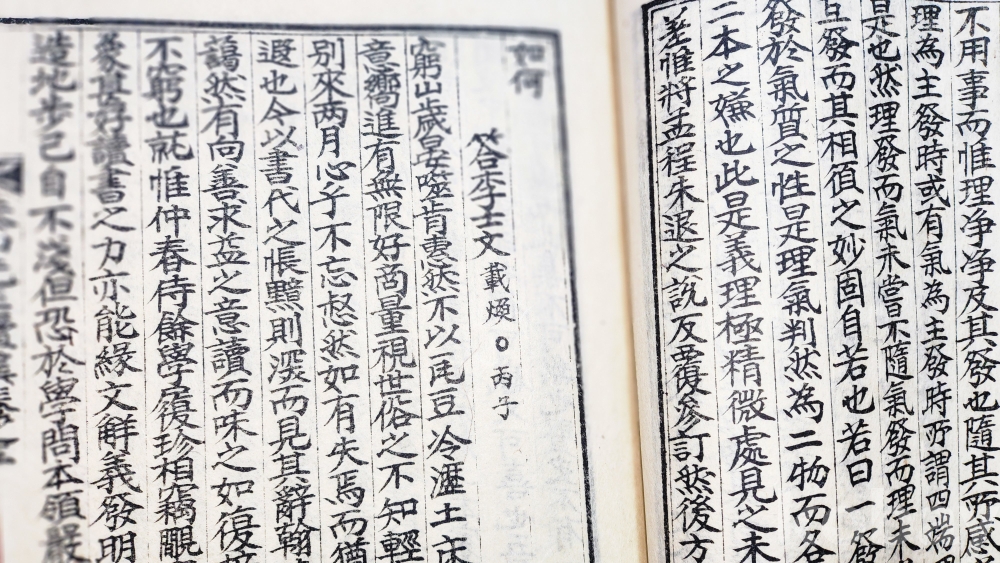 不用事而惟理净净及其發也隨其所感
理為主發時或有氣為主發時所謂四端
是也然理發而氣未嘗不隨氣發而理未
互發而其相須之妙固自若也若曰一發
發於氣質之性是理氣判然為二物而各
二本之嫌也此是義理極精微處見之未
差惟將孟程朱退之説反覆參訂然後方
如何
答李士文 載㷜○丙子
窮山歲晏噬肯惠然不以瓦豆冷瀝土床
意嚮進有無限好商量視世俗之不知輕
別來兩月心乎不忘怱然如有失焉而猶
遐也今以書代之悵黯則深而見其辭翰
藹然有向善求益之意讀而味之如復
不窮也就惟仲春侍餘學居復珍相竊覵
好讀書之力亦能緣文解義發明
造地步已自不淺但恐於學問本領嚴